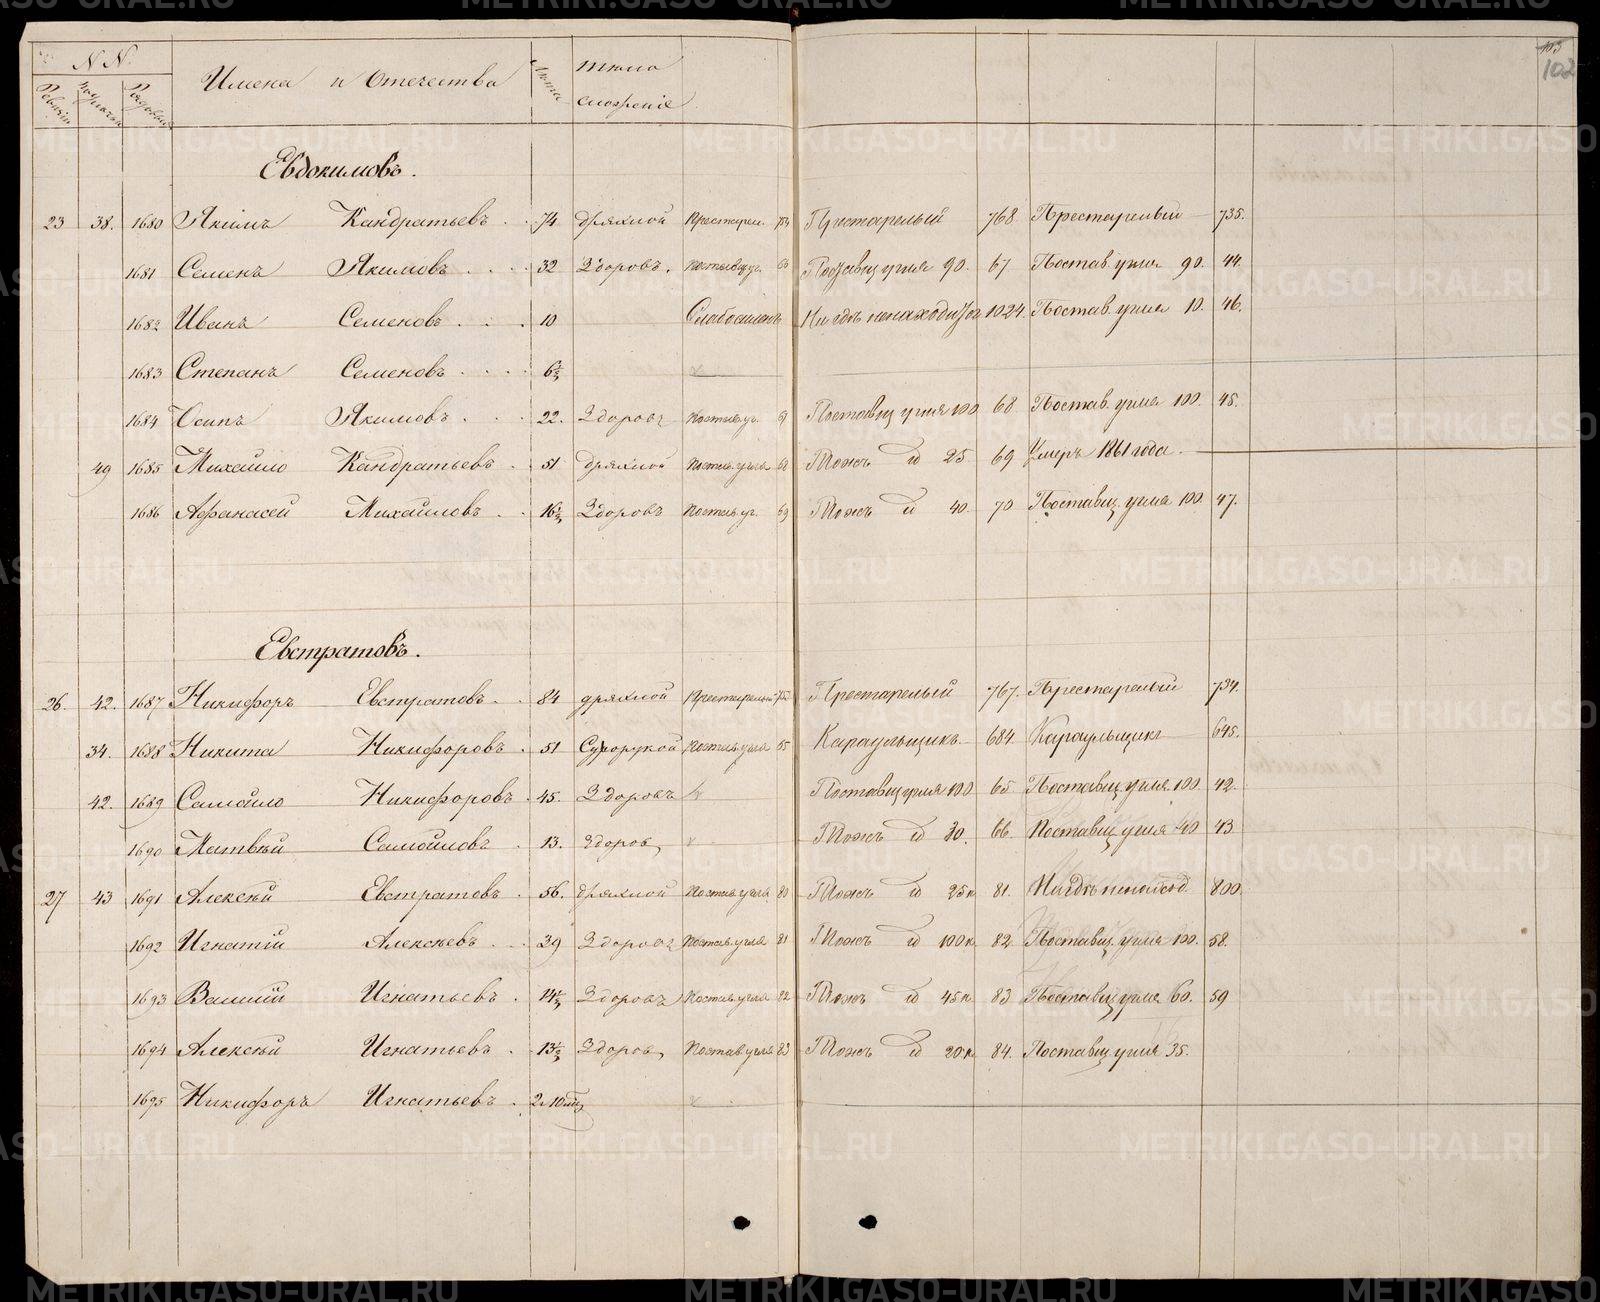 103
102
N N.
Имена и Отечества
Лѣта
тѣло
сложеніе
Ревизіи
Рядовые
Евдокимовъ.
23 38. 1680 Якимъ Кандратьевъ 74 дряхлой Престарел. Престарелый 768 Престарелый 735.
1681 Семенъ Якимовъ 32 Здоровъ. Поставщ угля 90. 67 Постав. угля 90. 44.
1682 Иванъ Семеновъ 10 Слабосиленъ Нигдѣ ненаходится 1024. Постав. угля 10. 46.
1683 Степанъ Семеновъ 6½
1684 Осипъ Якимовъ 22. Здоровъ Поставщ угля 100 68 Постав. угля 100. 45.
49 1685 Михайло Кандратьевъ 51 дряхлой Постав. угля Тожъ 25 69 Умеръ 1861 года.
1686 Афанасей Михайловъ 16½ Здоровъ Постав. уг. 69 Тожъ 40. 70 Поставщ. угля 100. 47.
Евстратовъ.
26. 42. 1687 Никифоръ Евстратовъ 84 дряхлой Престарелый Престарелый 767. Престарелый 734.
34. 1688 Никита Никифоровъ 51 Сухорукой Постав. угля 55 Караульщикъ. 684 Караульщикъ 645.
42. 1689 Самойло Никифоровъ 45. Здоровъ Поставщ угля 100 65 Поставщ. угля. 100 42.
1690 Матвѣй Самойловъ 13. Здоровъ Тожъ 30. 66. Поставщ. угля 40 43
27 43 1691 Алексѣй Евстратовъ 56. дряхлой Постав. угля 80 Тожъ 25 к 81. Нигдѣ ненаход 800.
1692 Игнатій Алексѣевъ 39 Здоровъ Постав. угля 81 Тожъ 100 к. 82 Поставщ. угля 100. 58.
1693 Василій Игнатьевъ 14½ Здоровъ Постав. угля 82 Тожъ 45 к. 83 Поставщ угля 60. 59
1694 Алексѣй Игнатьевъ 13½ Здоровъ Постав угля 83 Тожъ 20 к. 84. Поставщ угля 35.
1695 Никифоръ Игнатьевъ
METRIKI.GASO-URAL.RU